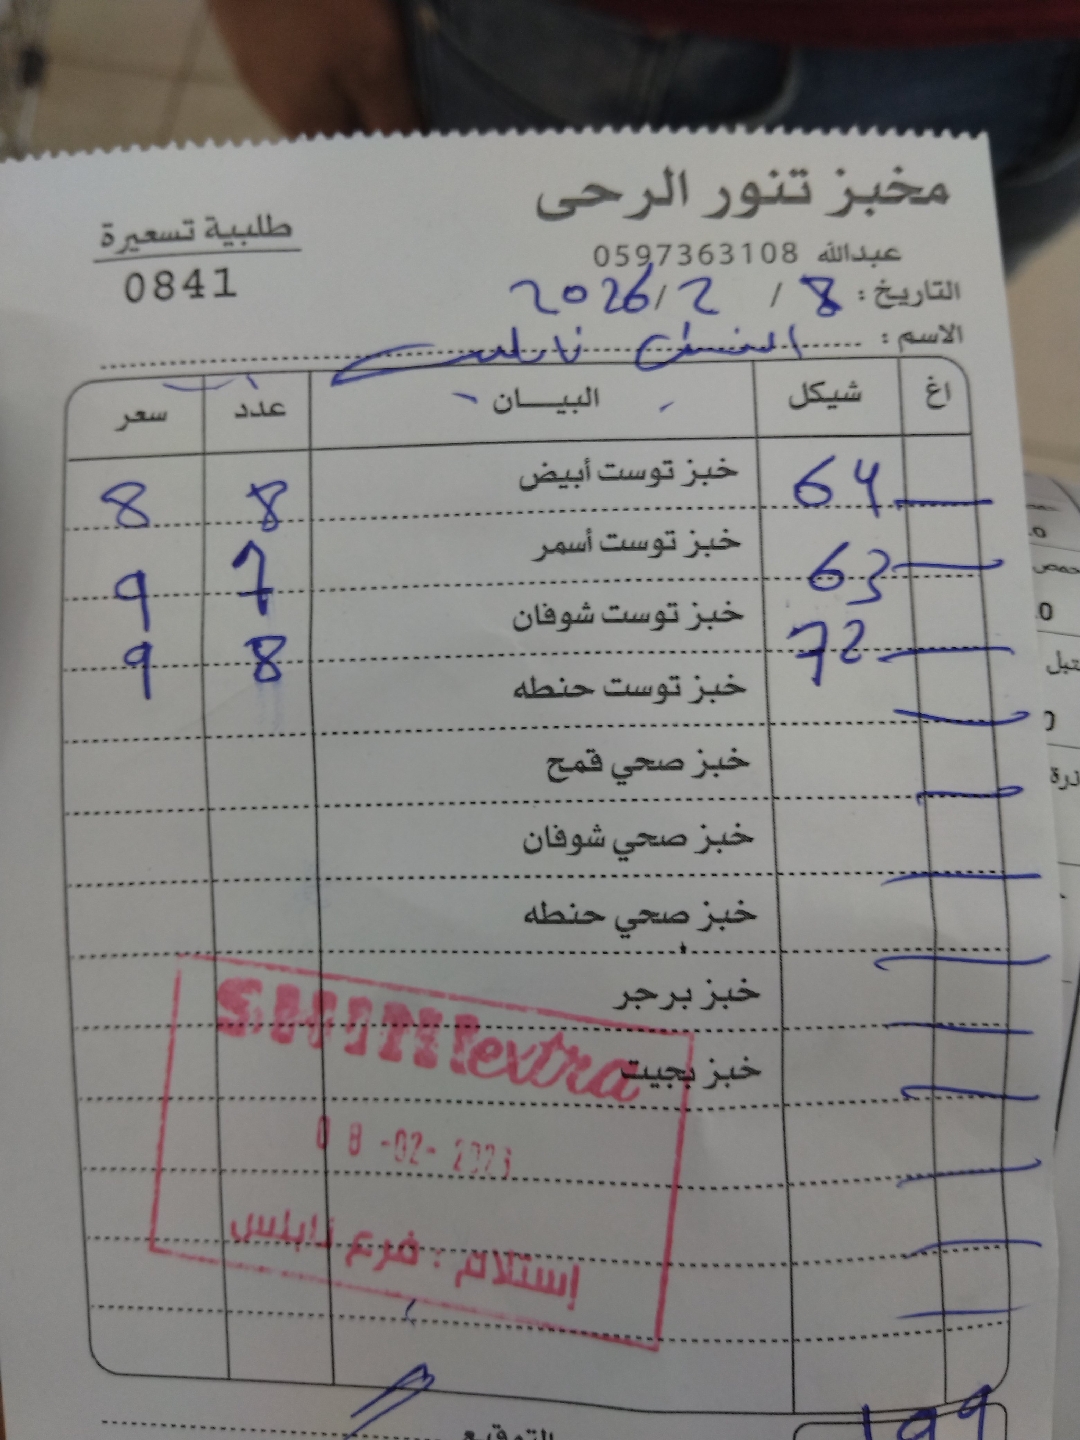 مخبز تنور الرحى
طلبية تسعيرة
0841
عبدالله 0597363108
التاريخ : 8 / 2 / 2026
الاسم : نابلس
اغ شيكل البيـــان عدد سعر
64 خبز توست أبيض 8 8
63 خبز توست أسمر 7 9
72 خبز توست شوفان 8 9
خبز توست حنطه
خبز صحي قمح
خبز صحي شوفان
خبز صحي حنطه
خبز برجر
خبز بجيت
SHINIextra
08-02-2026
إستلام : فرع نابلس
199
التوقيع
حمص
0
تبل
0
ذرة